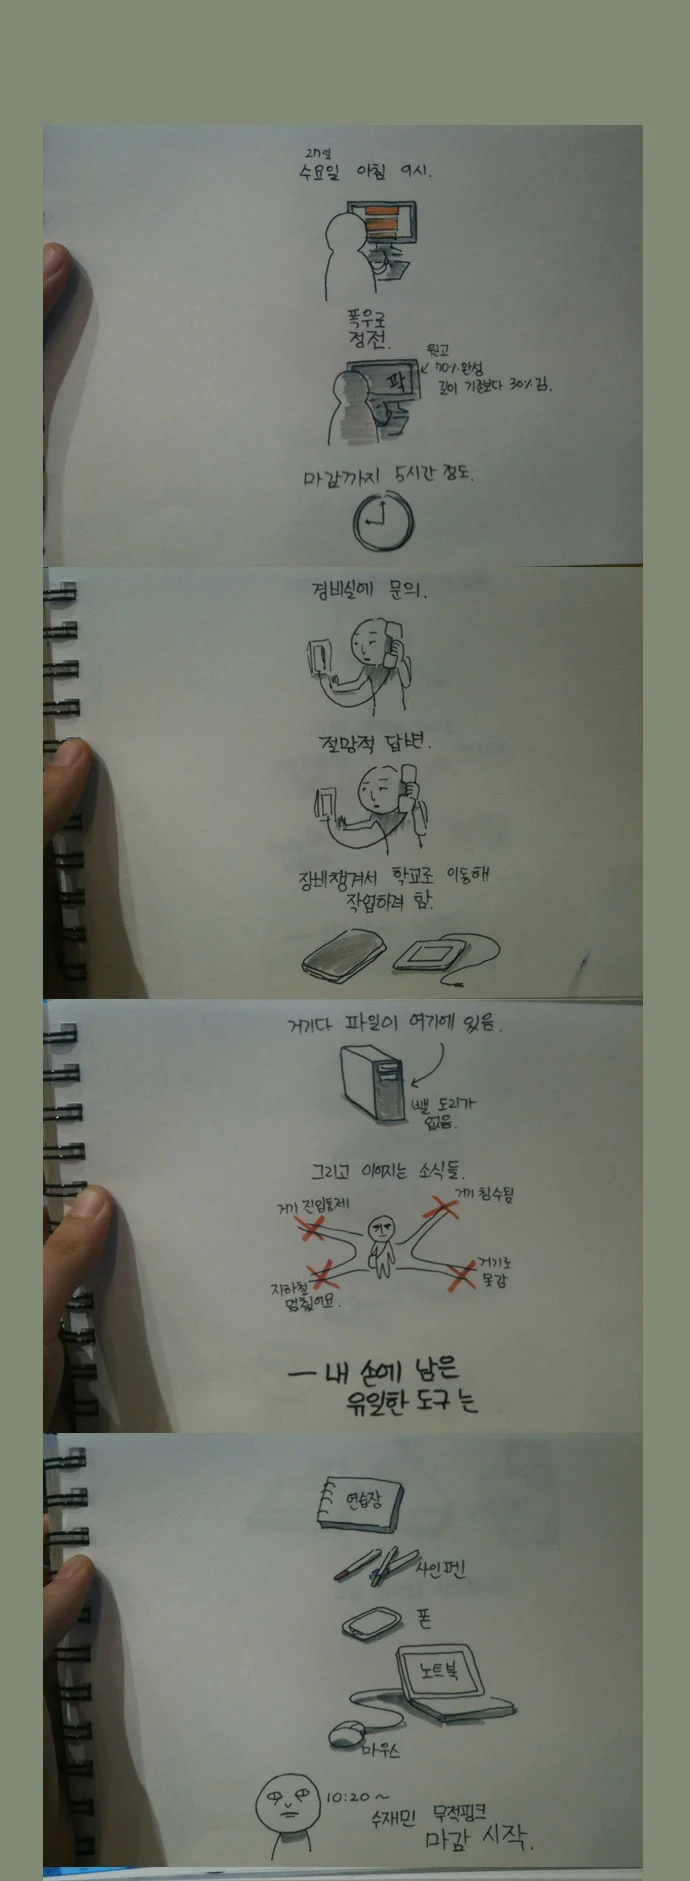 27일
수요일 아침 9시.
폭우로
정전.
팍
원고
70% 완성
길이 기존보다 30% 김.
마감까지 5시간 정도.
경비실에 문의.
절망적 답변.
장비챙겨서 학교로 이동해
작업하려 함.
거기다 파일이 여기에 있음.
뺄 도리가
없음.
그리고 이어지는 소식들.
거기 진입통제
거기 침수됨
지하철
멈췄어요.
거기로
못감
― 내 손에 남은
유일한 도구는
연습장
사인펜
폰
노트북
마우스
10:20 ~
수재민 무적핑크
마감 시작.